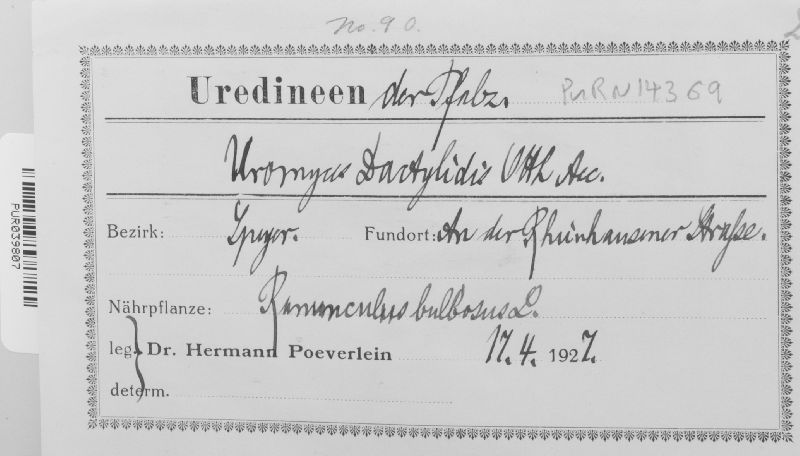 No. 90.
Uredineen der Pfalz.
PURN14369
Uromyces Dactylidis Otth Aec.
Bezirk: Speyer. Fundort: An der Rheinhausener Straße.
Nährpflanze: Ranunculus bulbosus L.
leg. Dr. Hermann Poeverlein 17. 4. 1927.
determ.
PUR039807